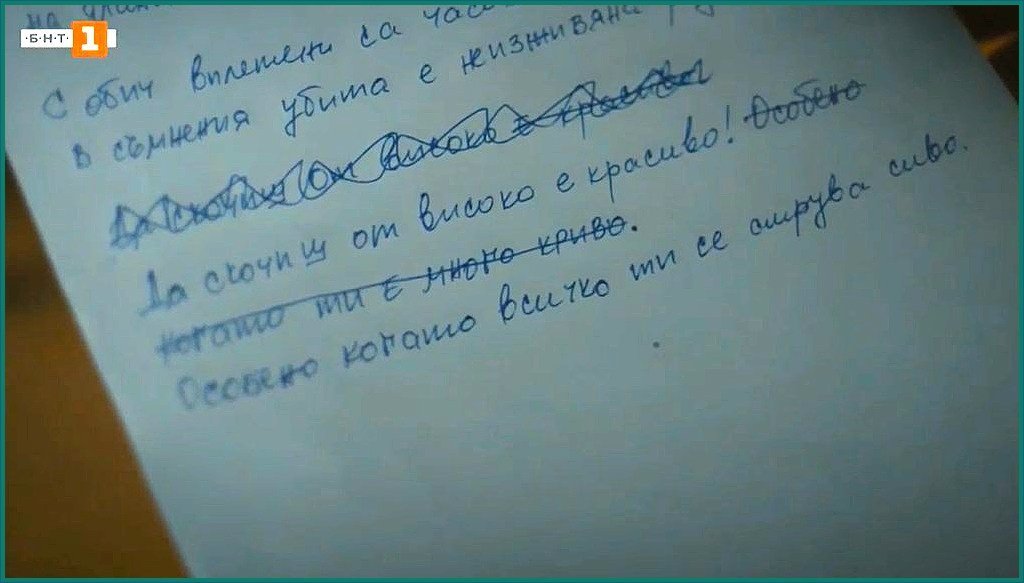 БНТ 1
на
С обич вплетени са часо
в съмнения убита е неизживяна
Да скочиш От високо е красиво
Да скочиш от високо е красиво! Особено
когато ти е много криво.
Особено когато всичко ти се струва сиво.